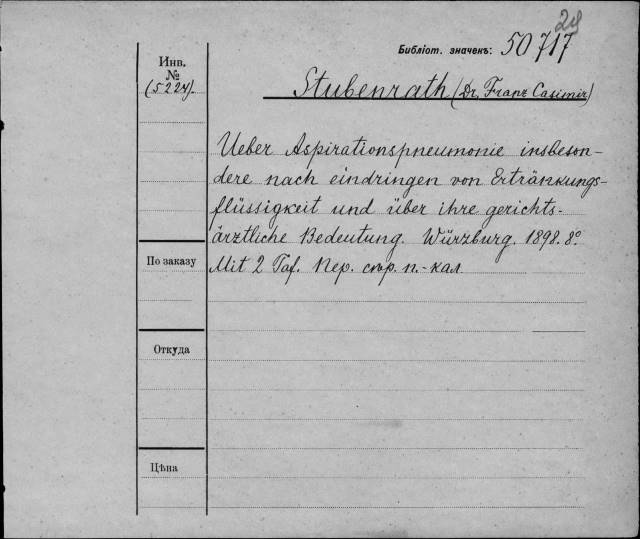 24
Библіот. значекъ: 50717
Инв.
№
(5224).
Stubenrath (Dr. Franz Casimir)
Ueber Aspirationspneumonie insbeson-
dere nach eindringen von Ertränkungs-
flüssigkeit und über ihre gerichts-
ärztliche Bedeutung. Würzburg. 1898. 8º.
По заказу
Mit 2 Taf. Пер. стр. п.-кал
Откуда
Цѣна